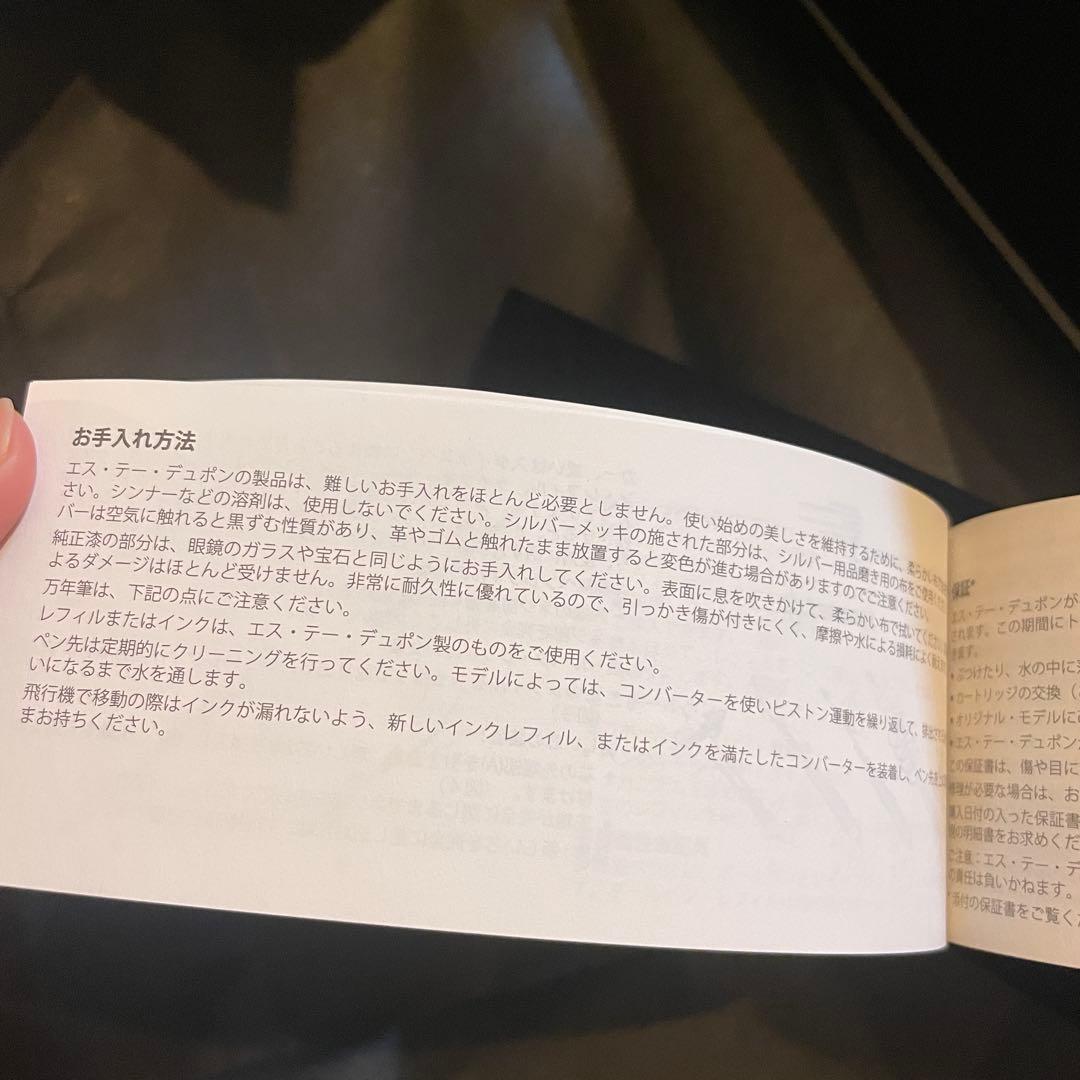 お手入れ方法
エス・テー・デュポンの製品は、難しいお手入れをほとんど必要としません。使い始めの美しさを維持するために、柔らかい布で
さい。シンナーなどの溶剤は、使用しないでください。シルバーメッキの施された部分は、シルバー用品磨き用の布をご使用くだ
バーは空気に触れると黒ずむ性質があり、革やゴムと触れたまま放置すると変色が進む場合がありますのでご注意ください。
純正漆の部分は、眼鏡のガラスや宝石と同じようにお手入れしてください。表面に息を吹きかけて、柔らかい布で拭いてくだ
よるダメージはほとんど受けません。非常に耐久性に優れているので、引っかき傷が付きにくく、摩擦や水による損耗によく
万年筆は、下記の点にご注意ください。
レフィルまたはインクは、エス・テー・デュポン製のものをご使用ください。
ペン先は定期的にクリーニングを行ってください。モデルによっては、コンバーターを使いピストン運動を繰り返して、
いになるまで水を通します。
飛行機で移動の際はインクが漏れないよう、新しいインクレフィル、またはインクを満たしたコンバーターを装着し、ペン先
まお持ちください。
保証*
エス・テー・デュポンが
されます。この期間にト
きます。
• ぶつけたり、水の中に
• カートリッジの交換（
• オリジナル・モデルに
• エス・テー・デュポン
この保証書は、傷や目に
修理が必要な場合は、お
購入日付の入った保証書
の明細書をお求めくだ
ご注意：エス・テー・デ
の責任は負いかねます。
*添付の保証書をご覧く